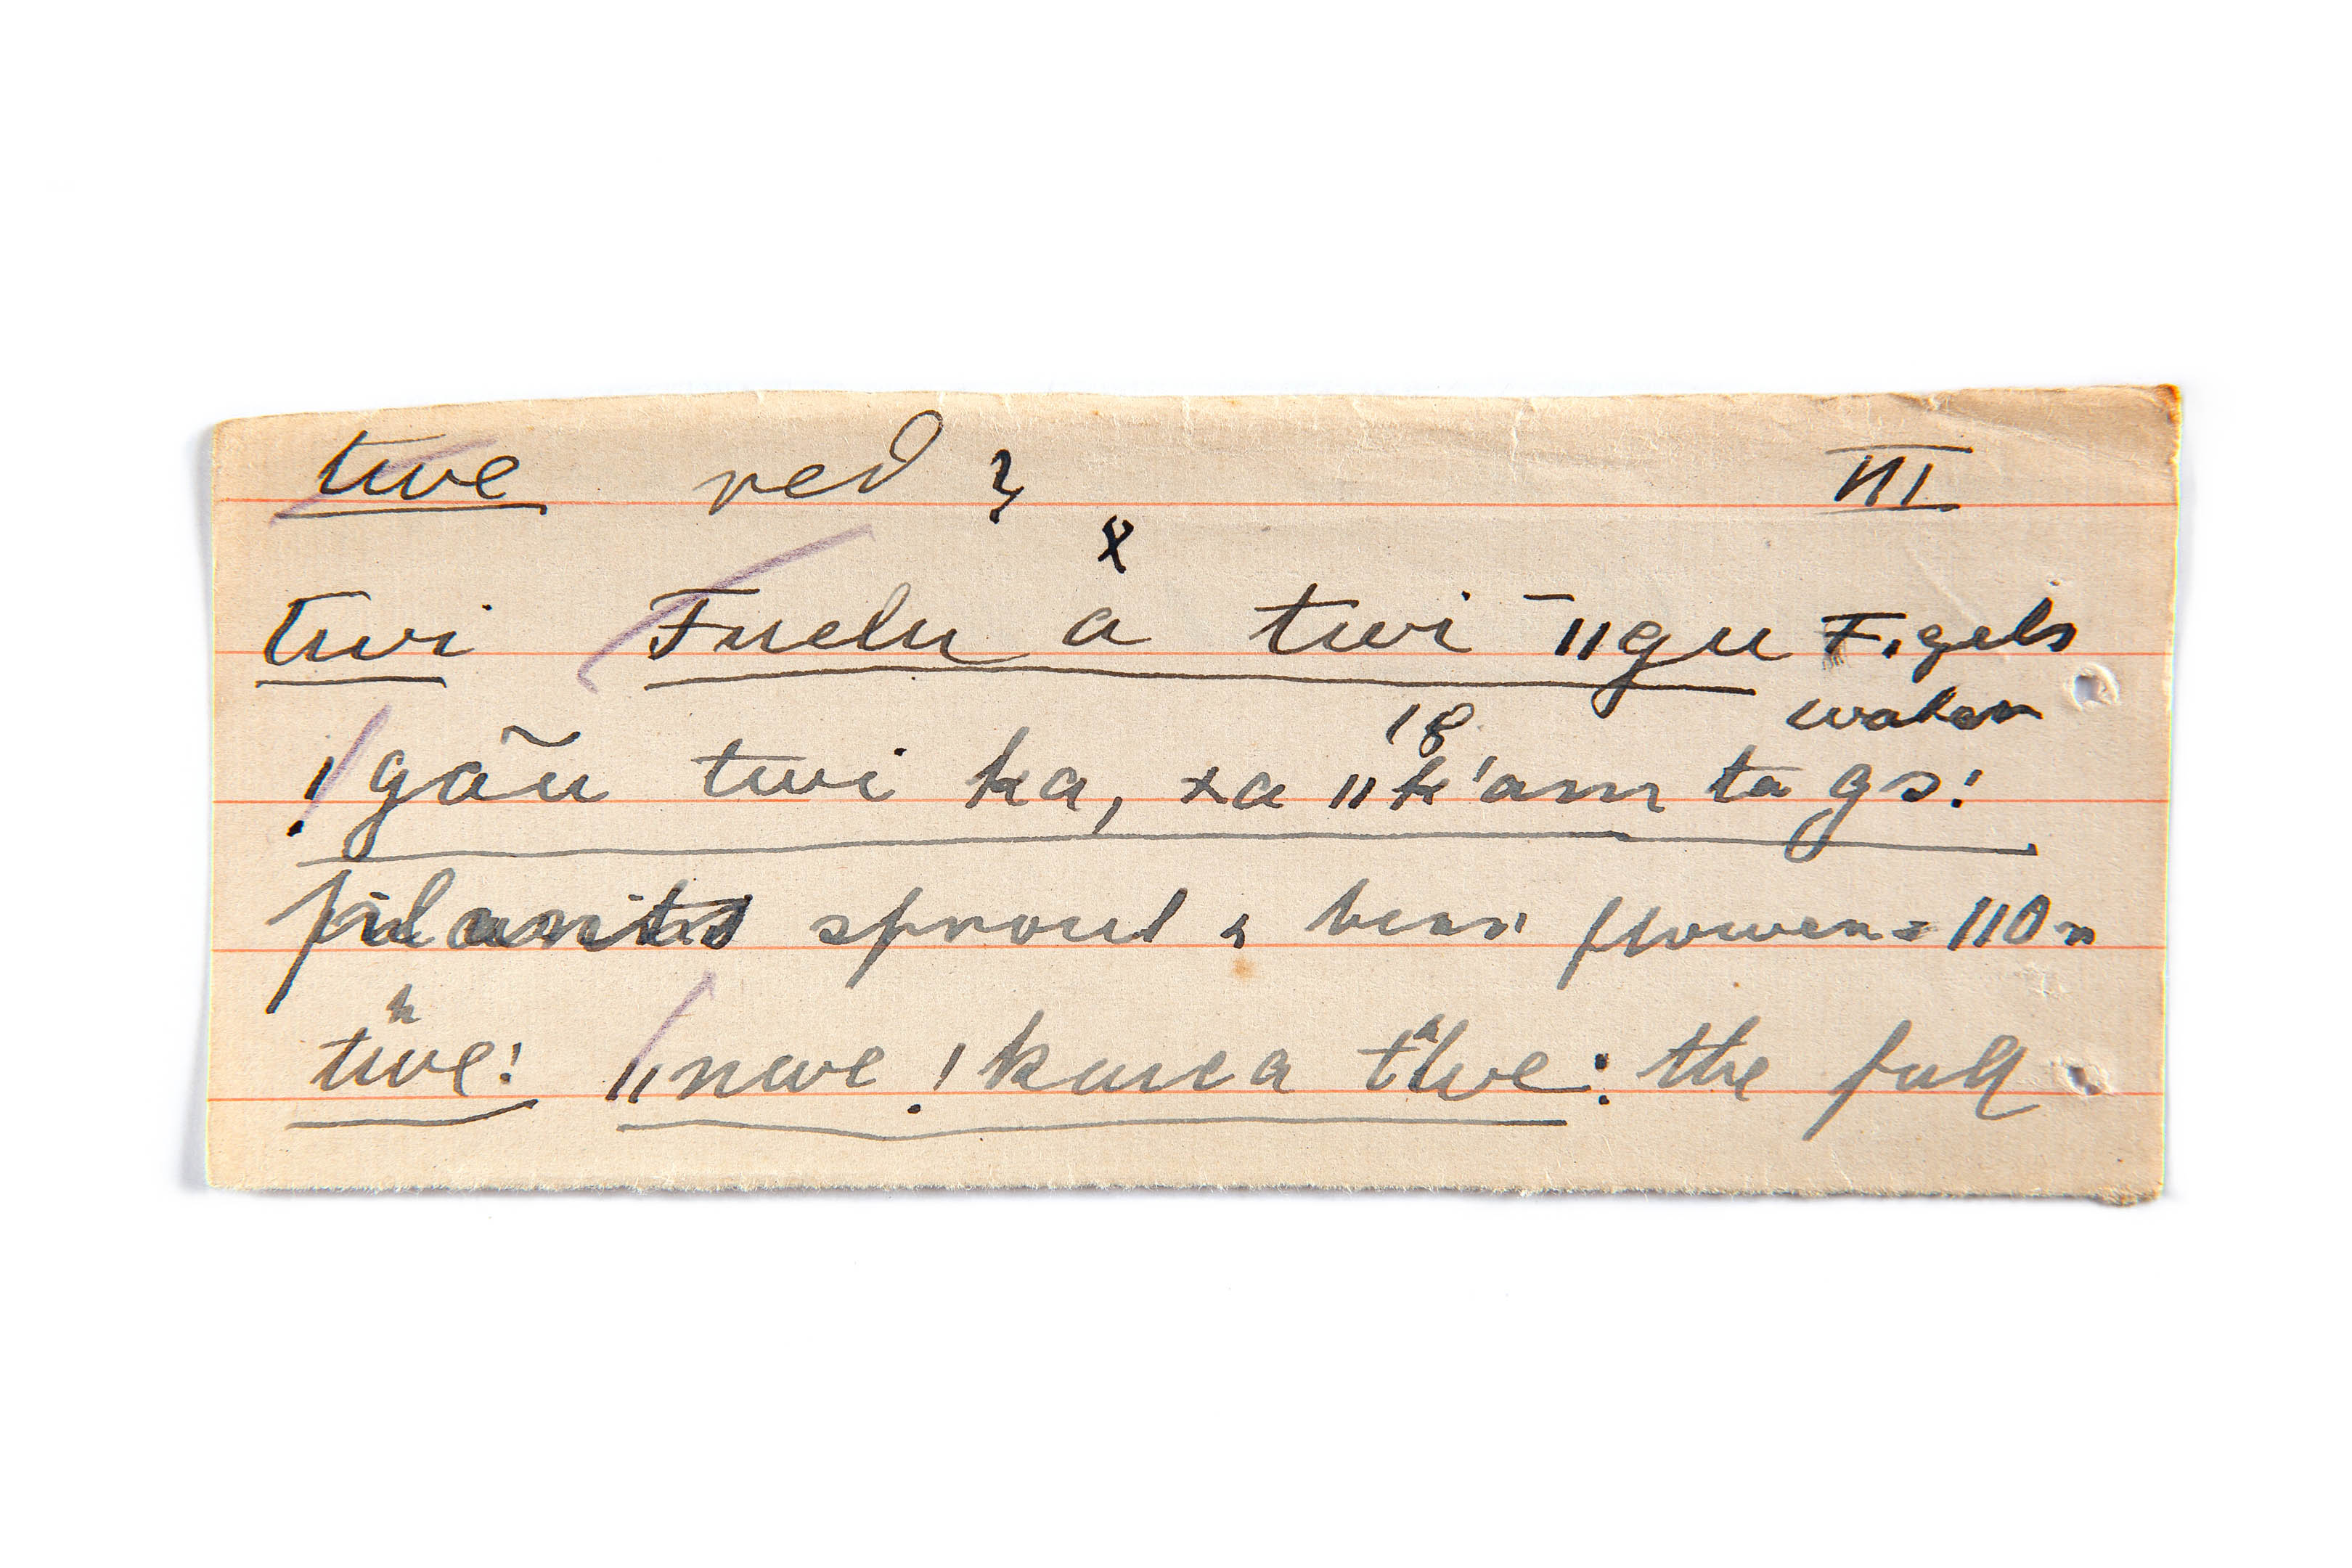 twe red? III
x
twi Fueln a twi ‖gu F. gets
18 water
!gãu twi ka, xa ‖k'am ta gs:
plants sprout & bear flowers = 110 n
twe: ‖nwe !kauca twe: the full